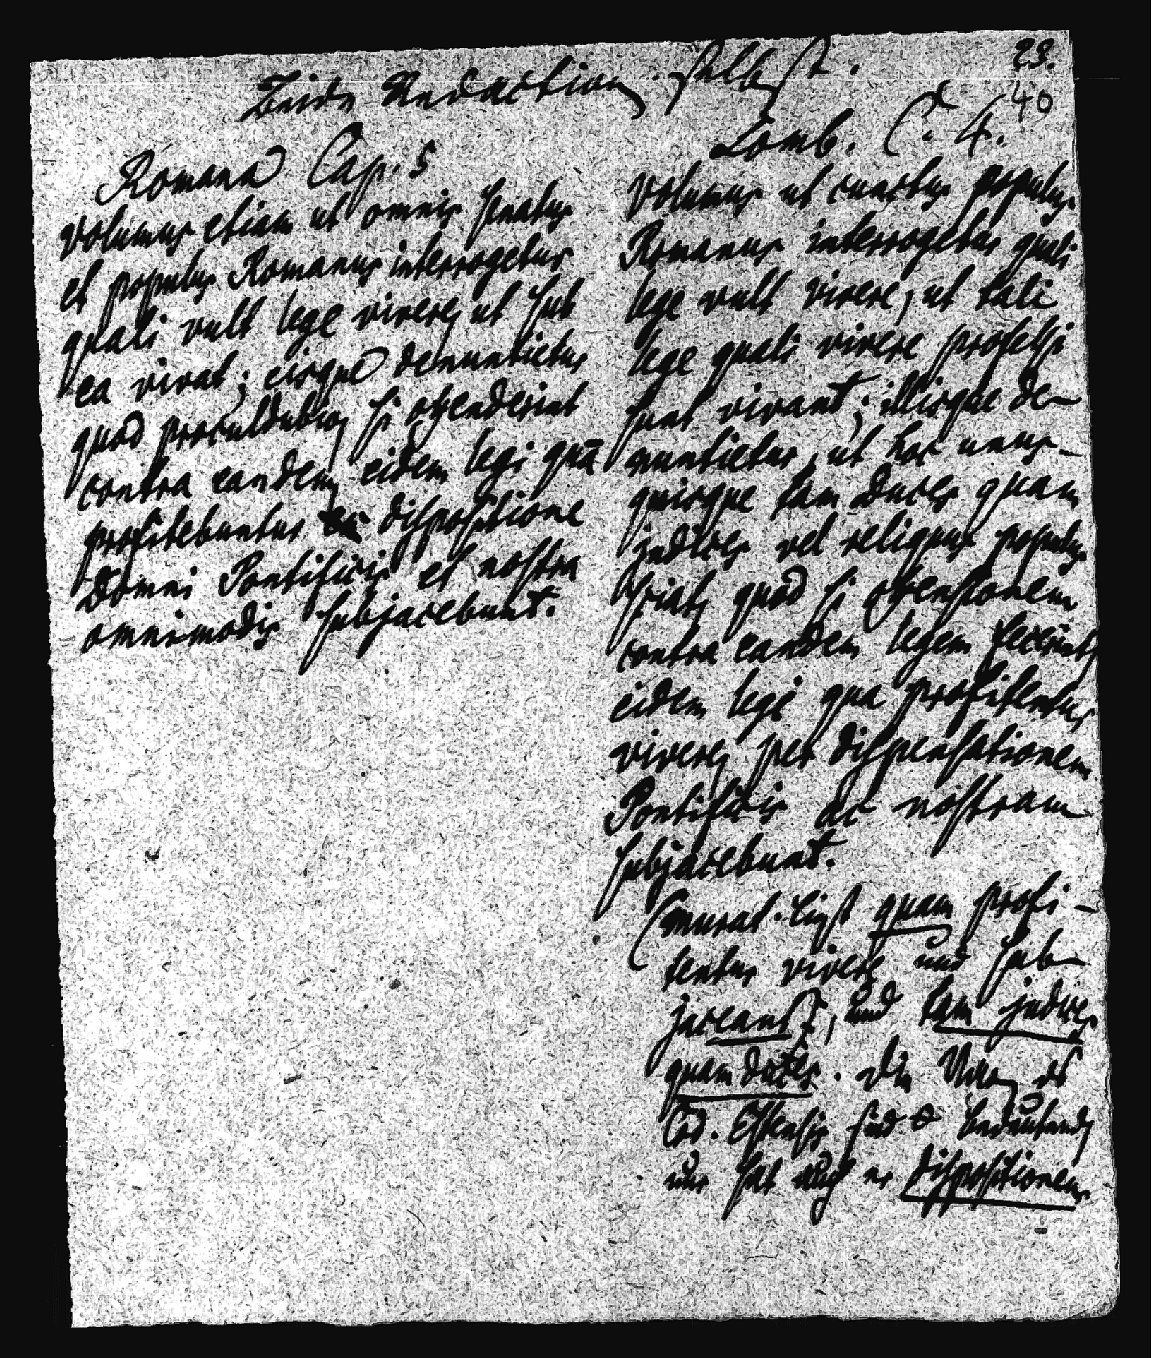 23.
40
Beide Redactionen selbst.
Romana Cap. 5
volumus etiam ut omnis senatus
et populus Romanus interrogetur
quali vult lege vivere, ut sub
ea vivat; eisque denuntietur
quod procul dubio, si offenderint
contra eandem, eidem legi quā
profitebuntur dispositione
Domni Pontificis et nostra
omnimodis subjacebunt.
Lomb. C. 4.
Volumus ut cunctus populus
Romanus interrogetur quali
lege vult vivere, ut tali
lege quali vivere professi
sunt vivant; illisque de-
nuntietur, ut hoc unus-
quisque tam duces quam
judices vel reliquus populus
sciat, quod si offensionem
contra eandem legem fecerint,
eidem legi qua profitentur
vivere, per dispensationem
Pontificis ac nostram
subjacebunt.
(Murat. liest quam profi-
tentur vivere und sub-
jaceant, und tam judices
quam duces. Die
Cod. Estensis sind
nur hat auch <dispositionem